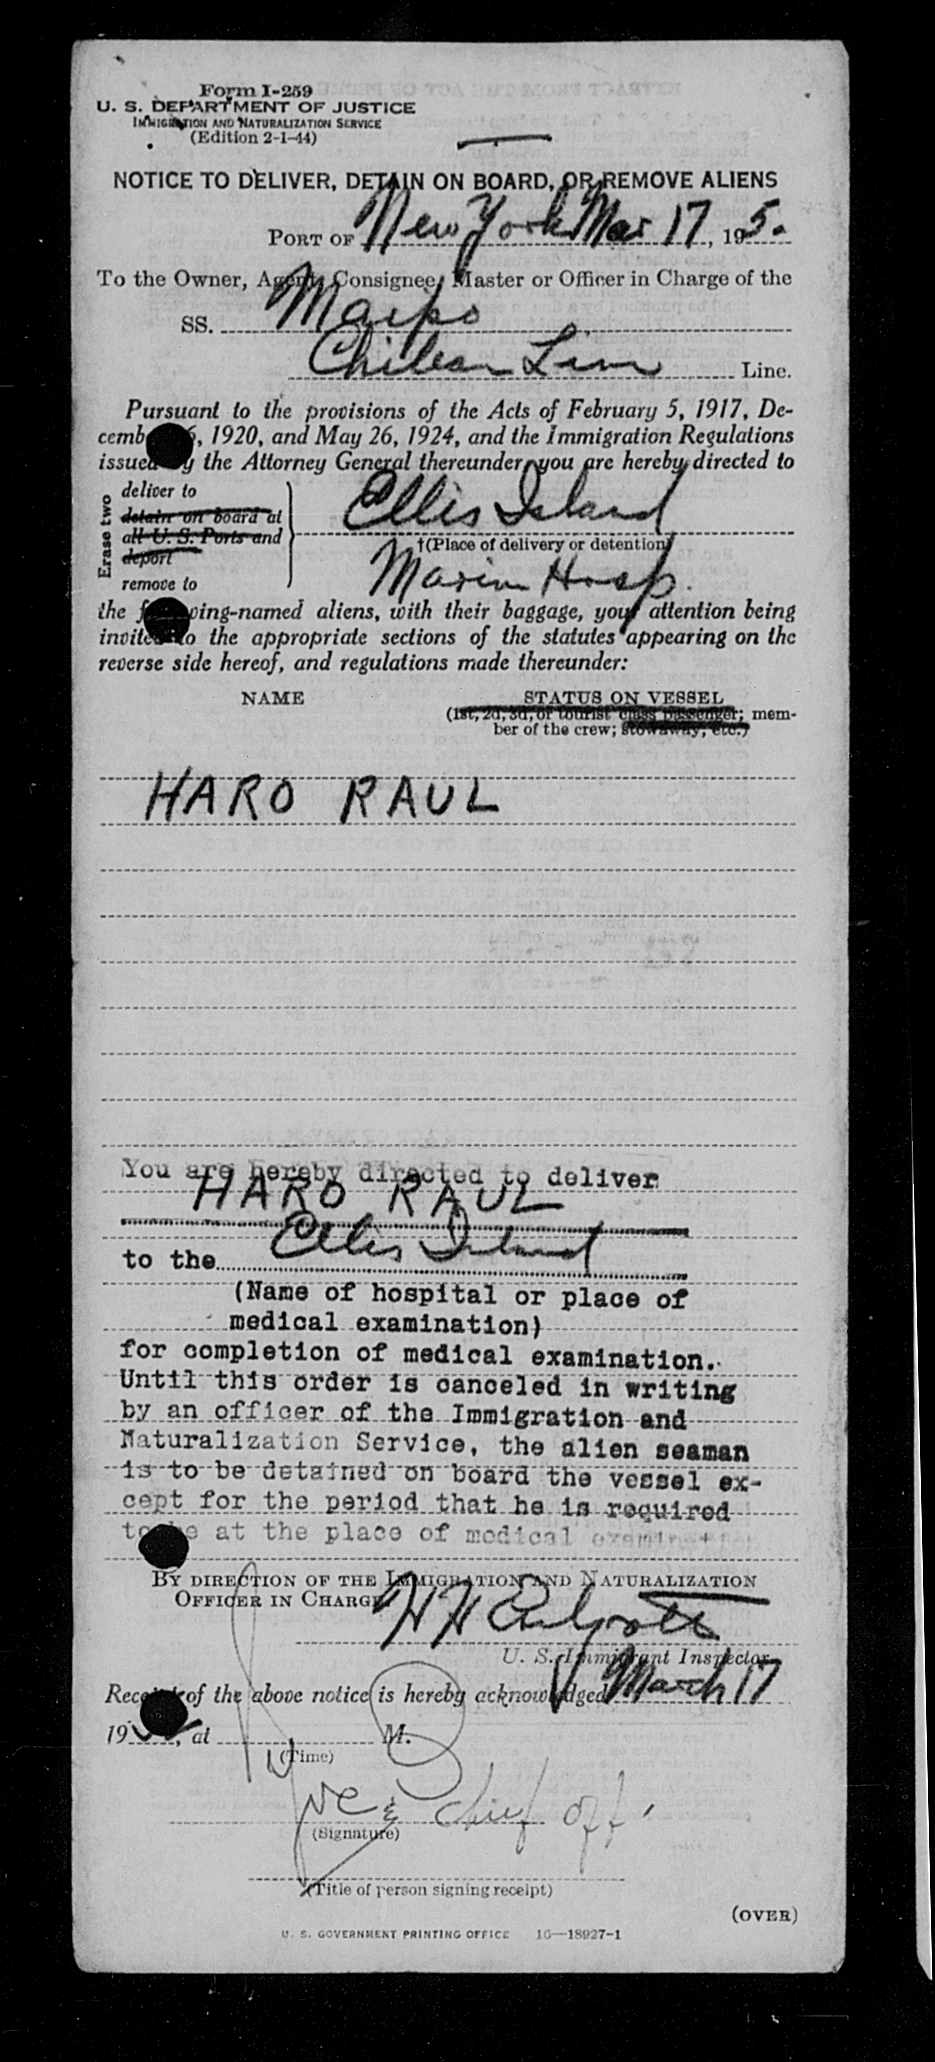 Form I-259
U. S. DEPARTMENT OF JUSTICE
IMMIGRATION AND NATURALIZATION SERVICE
(Edition 2-1-44)
NOTICE TO DELIVER, DETAIN ON BOARD, OR REMOVE ALIENS
PORT OF New York Mar 17, 195.
To the Owner, Agent, Consignee, Master or Officer in Charge of the
SS. Maipo
Chilean Line Line.
Pursuant to the provisions of the Acts of February 5, 1917, De-
cemb 5, 1920, and May 26, 1924, and the Immigration Regulations
issued by the Attorney General thereunder, you are hereby directed to
Erase two
deliver to
detain on board at
all U. S. Ports and
deport
remove to
Ellis Island
†(Place of delivery or detention)
Marine Hosp.
the following-named aliens, with their baggage, your attention being
invited to the appropriate sections of the statutes appearing on the
reverse side hereof, and regulations made thereunder:
NAME STATUS ON VESSEL
(1st, 2d, 3d, or tourist class passenger; mem-
ber of the crew; stowaway, etc.)
HARO RAUL
You are hereby directed to deliver
HARO RAUL
to the Ellis Island
(Name of hospital or place of
medical examination)
for completion of medical examination.
Until this order is canceled in writing
by an officer of the Immigration and
Naturalization Service, the alien seaman
is to be detained on board the vessel ex-
cept for the period that he is required
to be at the place of medical examination
BY DIRECTION OF THE IMMIGRATION AND NATURALIZATION
OFFICER IN CHARGE
U. S. Immigrant Inspector.
Receipt of the above notice is hereby acknowledged March 17
19, at M.
(Time)
chief off.
(Signature)
(Title of person signing receipt)
(OVER)
U. S. GOVERNMENT PRINTING OFFICE 16—18927-1